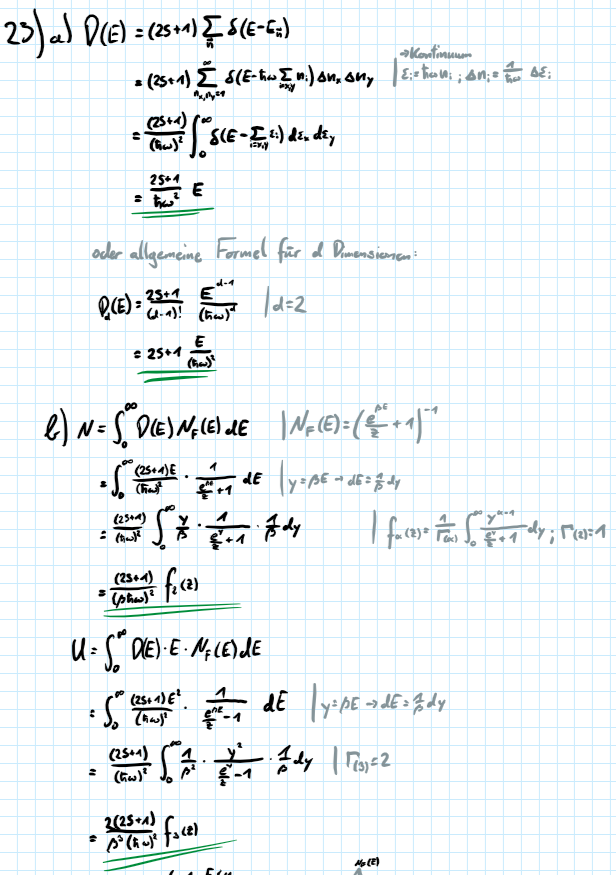 23) a) D(E) = (2S+1) ∑_n⃗ δ(E-E_n⃗)
= (2S+1) ∑_{n_x,n_y=1}^∞ δ(E-ħω ∑_{i=x,y} n_i) Δn_x Δn_y | →Kontinuum ε_i = ħω n_i ; Δn_i = 1/ħω Δε_i
= (2S+1)/(ħω)² ∫_0^∞ δ(E-∑_{i=x,y} ε_i) dε_x dε_y
= 2S+1/ħω² E
oder allgemeine Formel für d Dimensionen:
D_d(E) = 2S+1/(d-1)! E^{d-1}/(ħω)^d | d=2
= 2S+1 E/(ħω)²
b) N = ∫_0^∞ D(E) N_F(E) dE | N_F(E) = (e^{βE}/z + 1)^{-1}
= ∫_0^∞ (2S+1)E/(ħω)² · 1/(e^{βE}/z + 1) dE | y = βE → dE = 1/β dy
= (2S+1)/(ħω)² ∫_0^∞ y/β · 1/(e^y/z + 1) · 1/β dy | f_α(z) = 1/Γ(α) ∫_0^∞ y^{α-1}/(e^y/z + 1) dy ; Γ(2) = 1
= (2S+1)/(βħω)² f_2(z)
U = ∫_0^∞ D(E) · E · N_F(E) dE
= ∫_0^∞ (2S+1)E²/(ħω)² · 1/(e^{βE}/z - 1) dE | y = βE → dE = 1/β dy
= (2S+1)/(ħω)² ∫_0^∞ 1/β² · y²/(e^y/z - 1) · 1/β dy | Γ(3) = 2
= 2(2S+1)/β³(ħω)² f_3(z)
N_F(E)